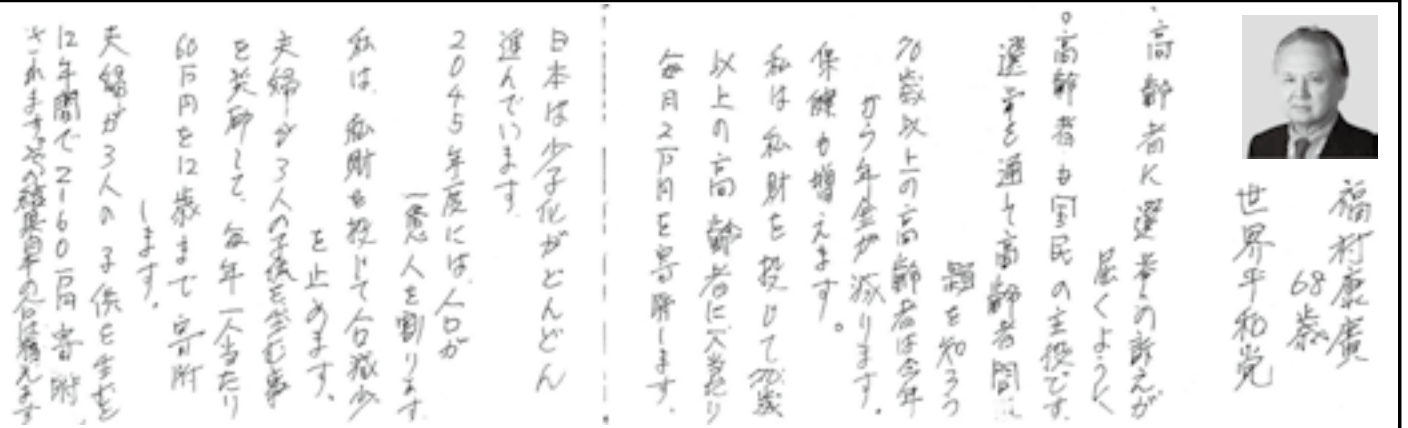 福村康廣
68歳
世界平和党
・高齢者に選挙の訴えが
届くように
。高齢者も国民の主役です
選挙を通して高齢者問
題を知ろう
70歳以上の高齢者は今年
から年金が減ります。
保険も増えます。
私は私財を投じて70歳
以上の高齢者に一人当たり
毎月2万円を寄附します。
日本は少子化がどんどん
進んでいます
2045年度には、人口が
一億人を割ります
私は、私財を投じて人口減少
を止めます。
夫婦が3人の子供を生む事
を奨励して、毎年一人当たり
60万円を12歳まで寄附
します。
夫婦が3人の子供を生むと
12年間で2160万円寄附
されます。その結果日本の人口は増えます